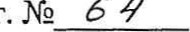 г. № 64